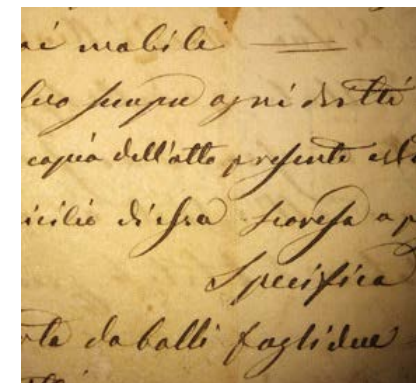 mobile
sempre ogni diritti
copia dell'atto presente
icilio di essa
Specifica
da bolli fogli due